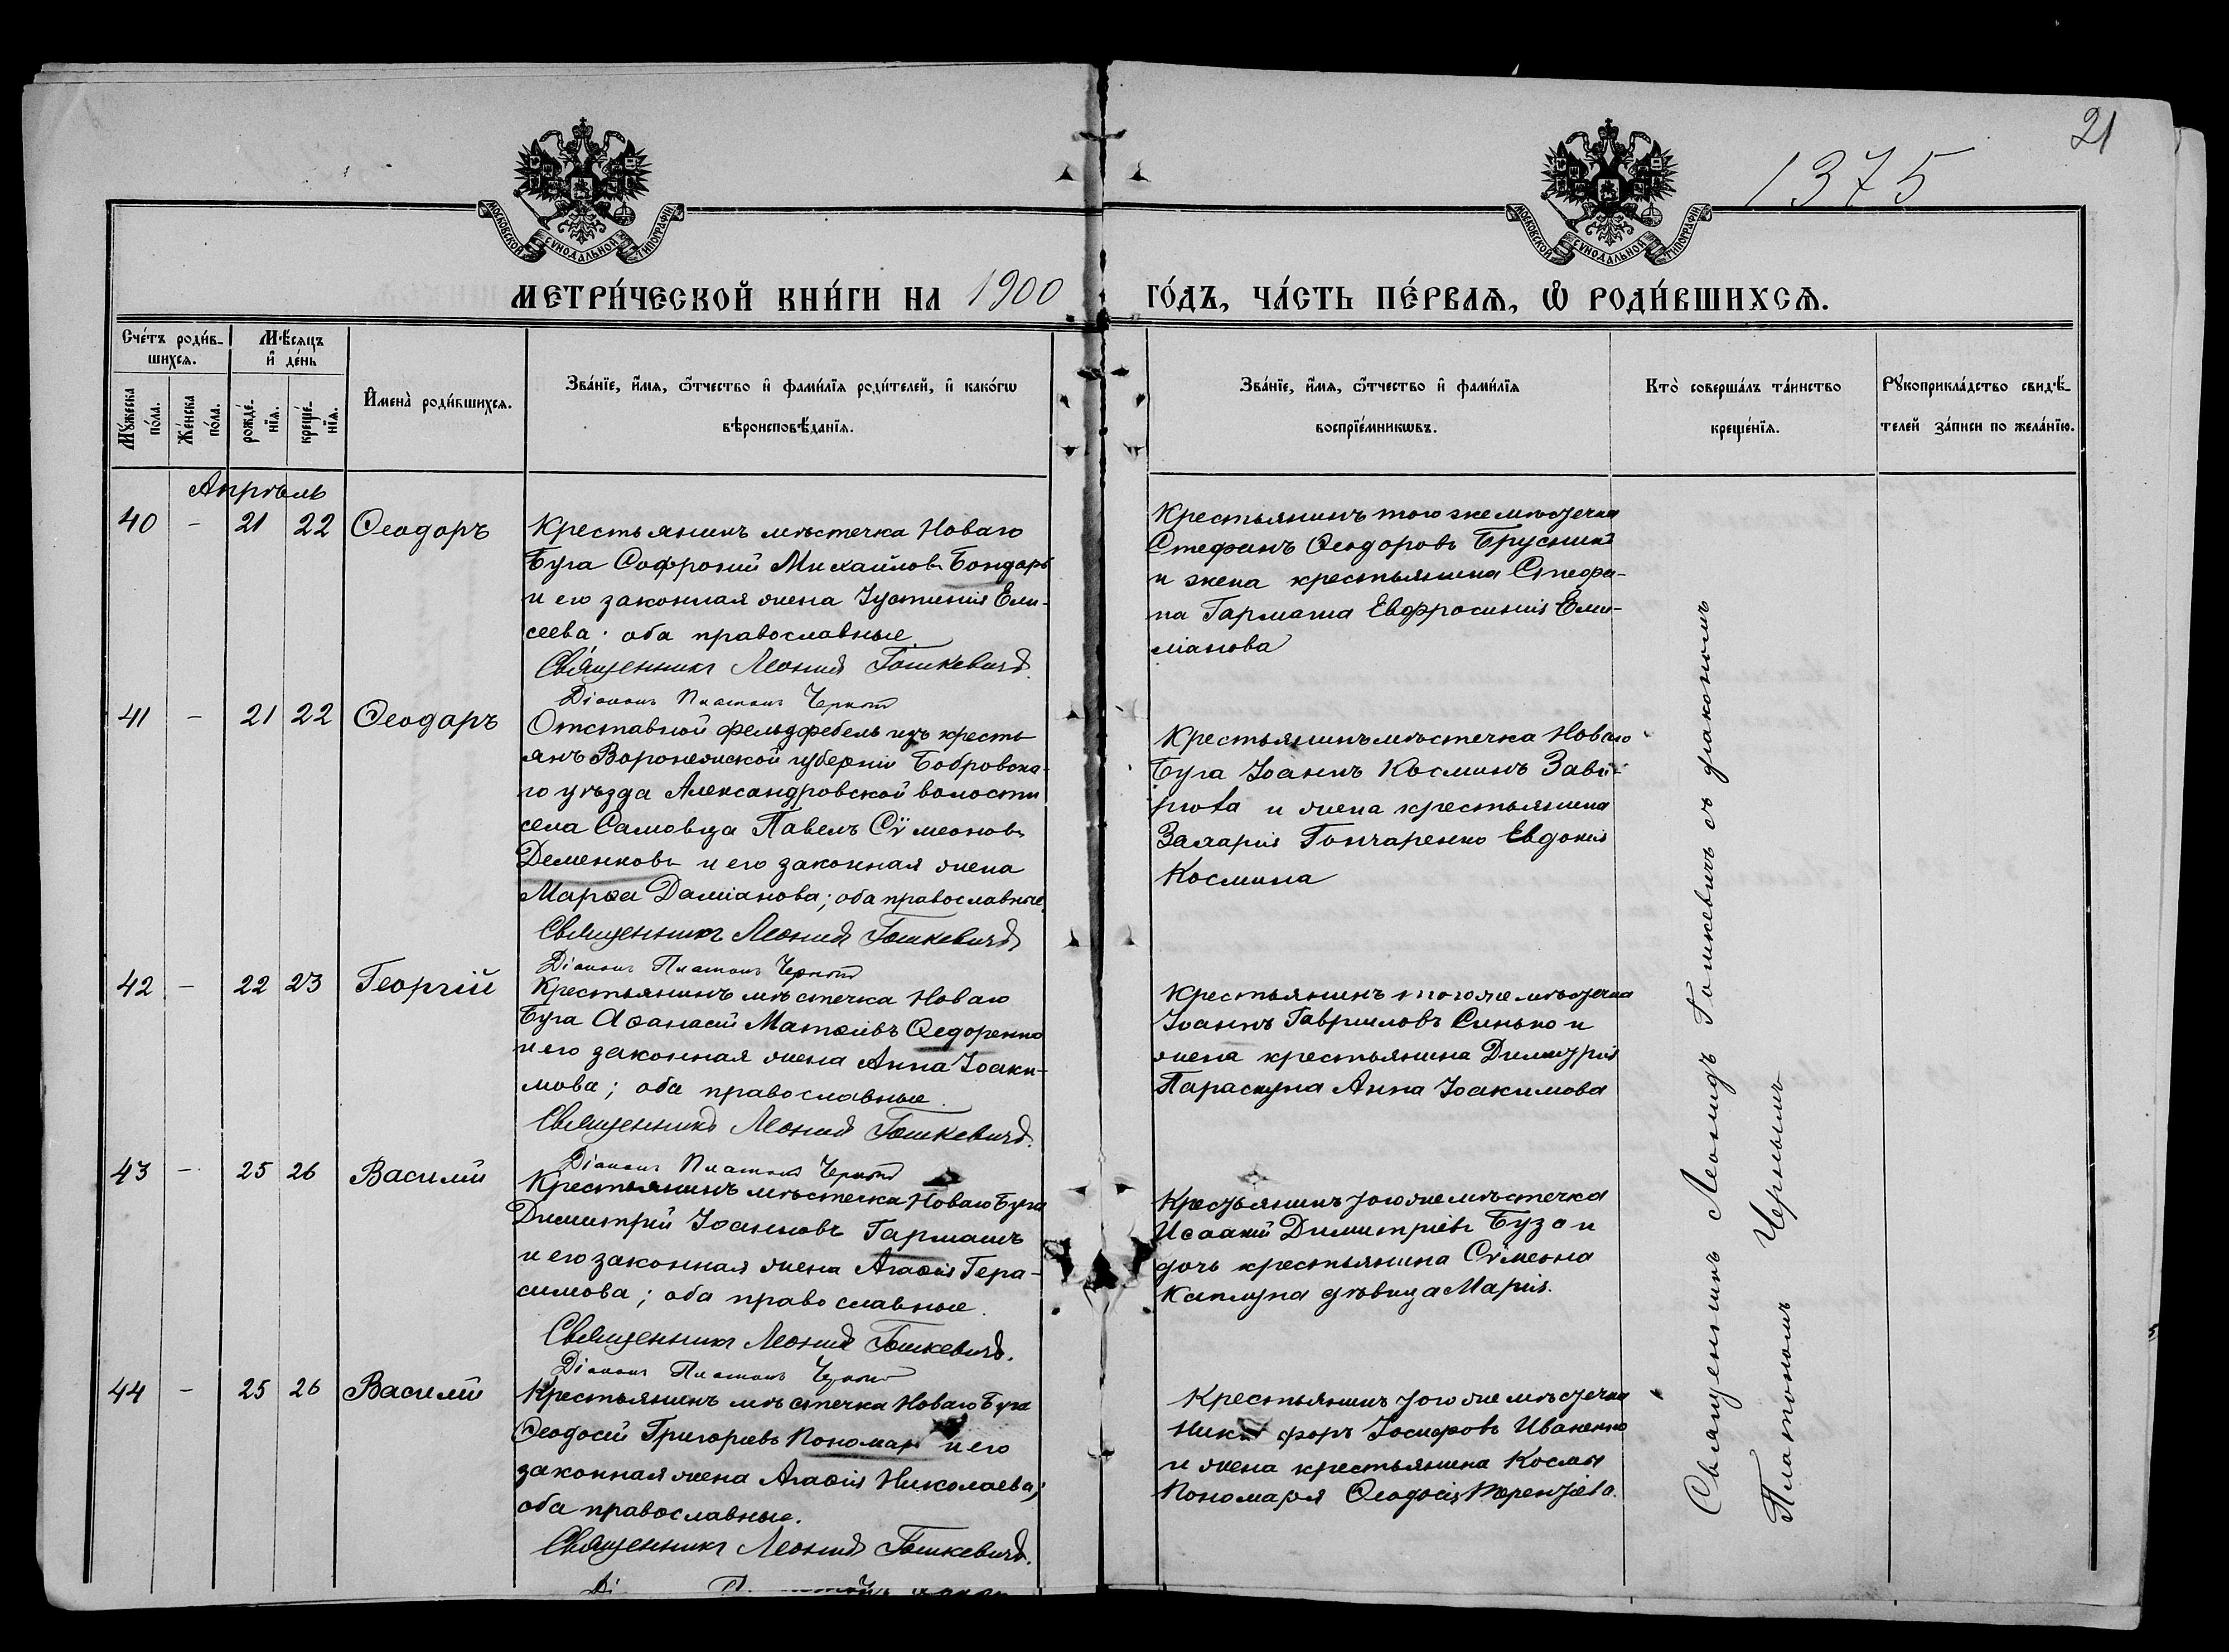 21
1375
МОСКОВСКОЙ СѴНОДАЛЬНОЙ ТИПОГРАФІИ
МОСКОВСКОЙ СѴНОДАЛЬНОЙ ТИПОГРАФІИ
МЕТРИ́ЧЕСКОЙ КНИ́ГИ НА 1900 ГО́ДЪ, ЧА́СТЬ ПЕ́РВАѦ, Ѡ҆ РОДИ́ВШИХСѦ.
Сче́тъ роди́в-
шихсѧ.
Мꙋ́жеска по́ла.
Же́нска по́ла.
Мѣ́сѧцъ и҆ де́нь
рожде́-
нїѧ.
креще́-
нїѧ.
И҆мена̀ роди́вшихсѧ.
Зва́нїе, и҆́мѧ, ѻ҆́тчество и҆ фами́лїѧ роди́телей, и҆ како́гѡ
вѣроисповѣ́данїѧ.
Зва́нїе, и҆́мѧ, ѻ҆́тчество и҆ фами́лїѧ
воспрїе́мникѡвъ.
Кто̀ соверша́лъ та́инство
креще́нїѧ.
Рꙋкоприкла́дство свидѣ́-
телей за́писи по жела́нїю.
Апрѣль
40 - 21 22 Ѳеодоръ
Крестьянинъ мѣстечка Новаго
Буга Софроній Михайловъ Бондарь
и его законная жена Іустинія Ели-
сеева; оба православные
Священникъ Леонид Гошкевичъ.
Діаконъ Платонъ Черный
Крестьянинъ того же мѣстечка
Стефанъ Ѳеодоровъ Брусникъ
и жена крестьянина Стефа-
на Гармаша Евфросинія Еми-
ліанова
41 - 21 22 Ѳеодоръ
Отставной фельдфебель изъ кресть
янъ Воронежской губерніи Бобровска-
го уѣзда Александровской волости
села Самовца Павелъ Сѵмеоновъ
Деменковъ и его законная жена
Марѳа Даміанова; оба православные.
Священникъ Леонид Гошкевичъ
Діаконъ Платонъ Черный
Крестьянинъ мѣстечка Новаго
Буга Іоаннъ Косминъ
и жена крестьянина
Захарія Гончаренко Евдокія
Космина
42 - 22 23 Георгій
Крестьянинъ мѣстечка Новаго
Буга Аѳанасій Матѳіевъ Ѳедоренко
и его законная жена Анна Іоаки-
мова; оба православные.
Священникъ Леонид Гошкевичъ.
Діаконъ Платонъ Черный
Крестьянинъ того же мѣстечка
Іоаннъ Гавриловъ Синько и
жена крестьянина Димитрія
Параскуна Анна Іоакимова
43 - 25 26 Василій
Крестьянинъ мѣстечка Новаго Буга
Димитрій Іоанновъ Гармашъ
и его законная жена Агаѳія Гера-
симова; оба православные.
Священникъ Леонид Гошкевичъ.
Діаконъ Платонъ Черный
Крестьянинъ того же мѣстечка
Исаакій Димитріевъ Буза и
дочь крестьянина Сѵмеона
Каплуна дѣвица Марія.
44 - 25 26 Василій
Крестьянинъ мѣстечка Новаго Буга
Ѳеодосій Григорьевъ Пономарь и его
законная жена Агаѳія Николаева;
оба православные.
Священникъ Леонид Гошкевичъ.
Крестьянинъ того же мѣстечка
Никифоръ Іосифовъ Иваненко
и жена крестьянина Космы
Пономаря Ѳеодосія Терентіева.
Священникъ Леонидъ Гошкевичъ съ діакономъ
Платономъ Чернымъ